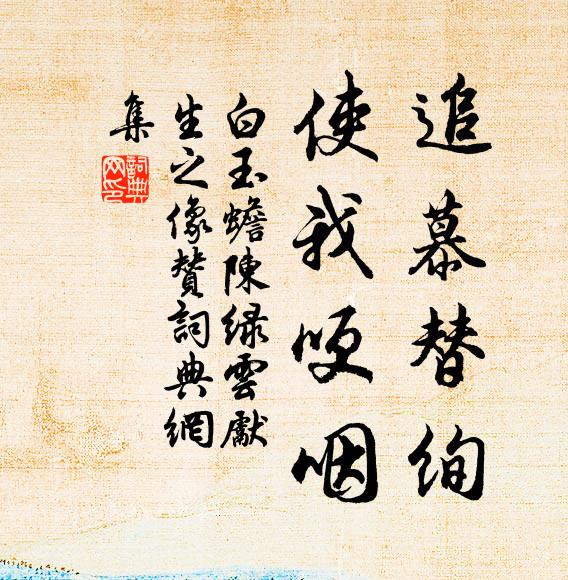 追慕替絢
使我哽咽
白玉蟾陳綠雲獻
生之像贊詞典網
集
詞典網印